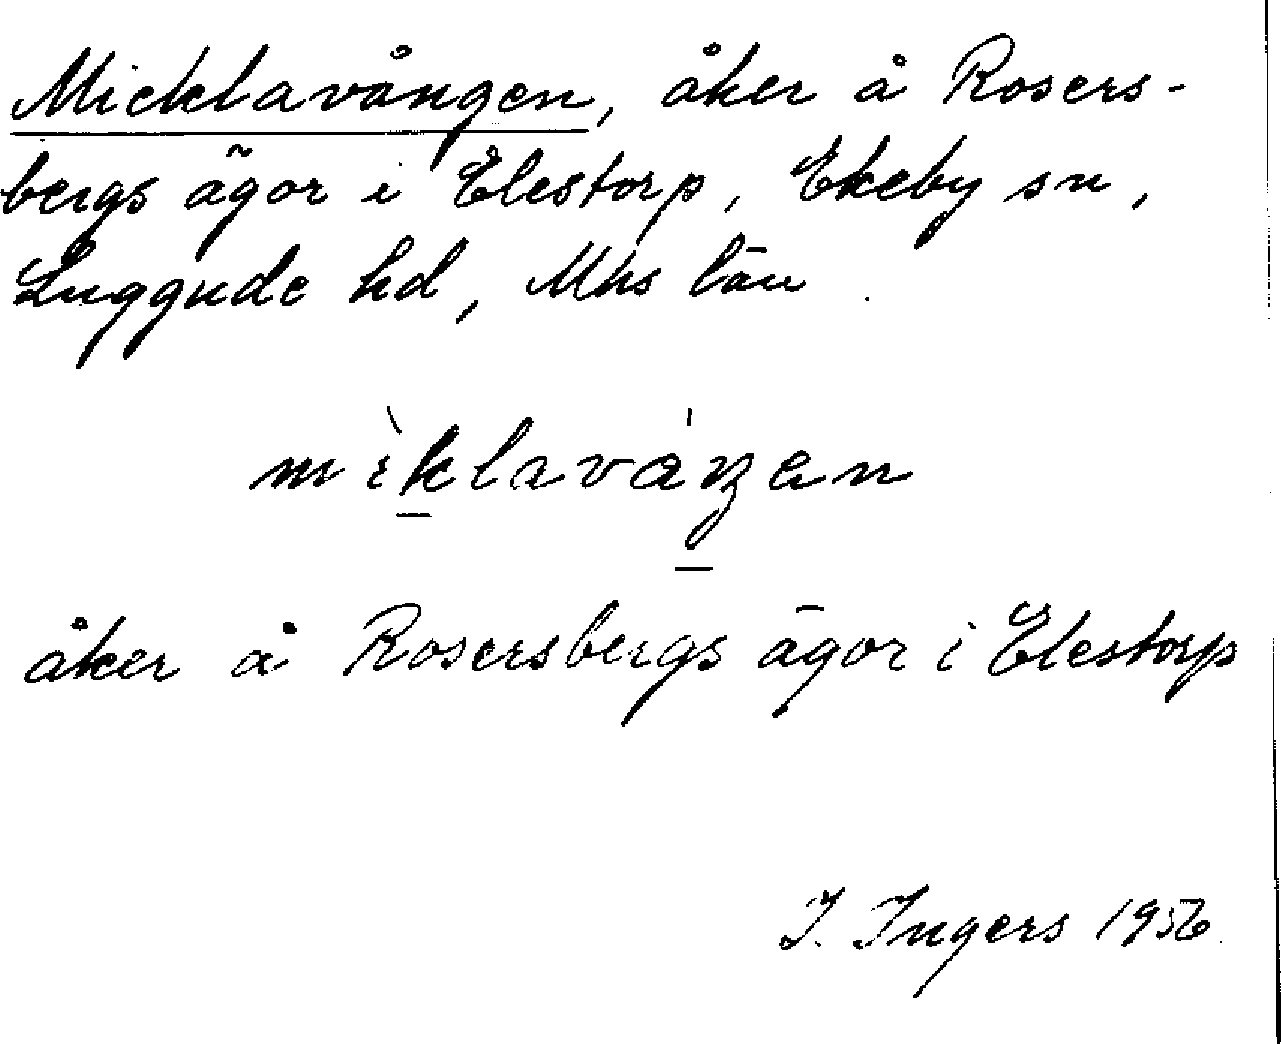 Micklavången, åker å Rosers-
bergs ägor i Elestorp, Ekeby sn,
Luggude hd, Mhs län.
mìklaváŋen
åker å Rosersbergs ägor i Elestorp
I. Ingers 1956.